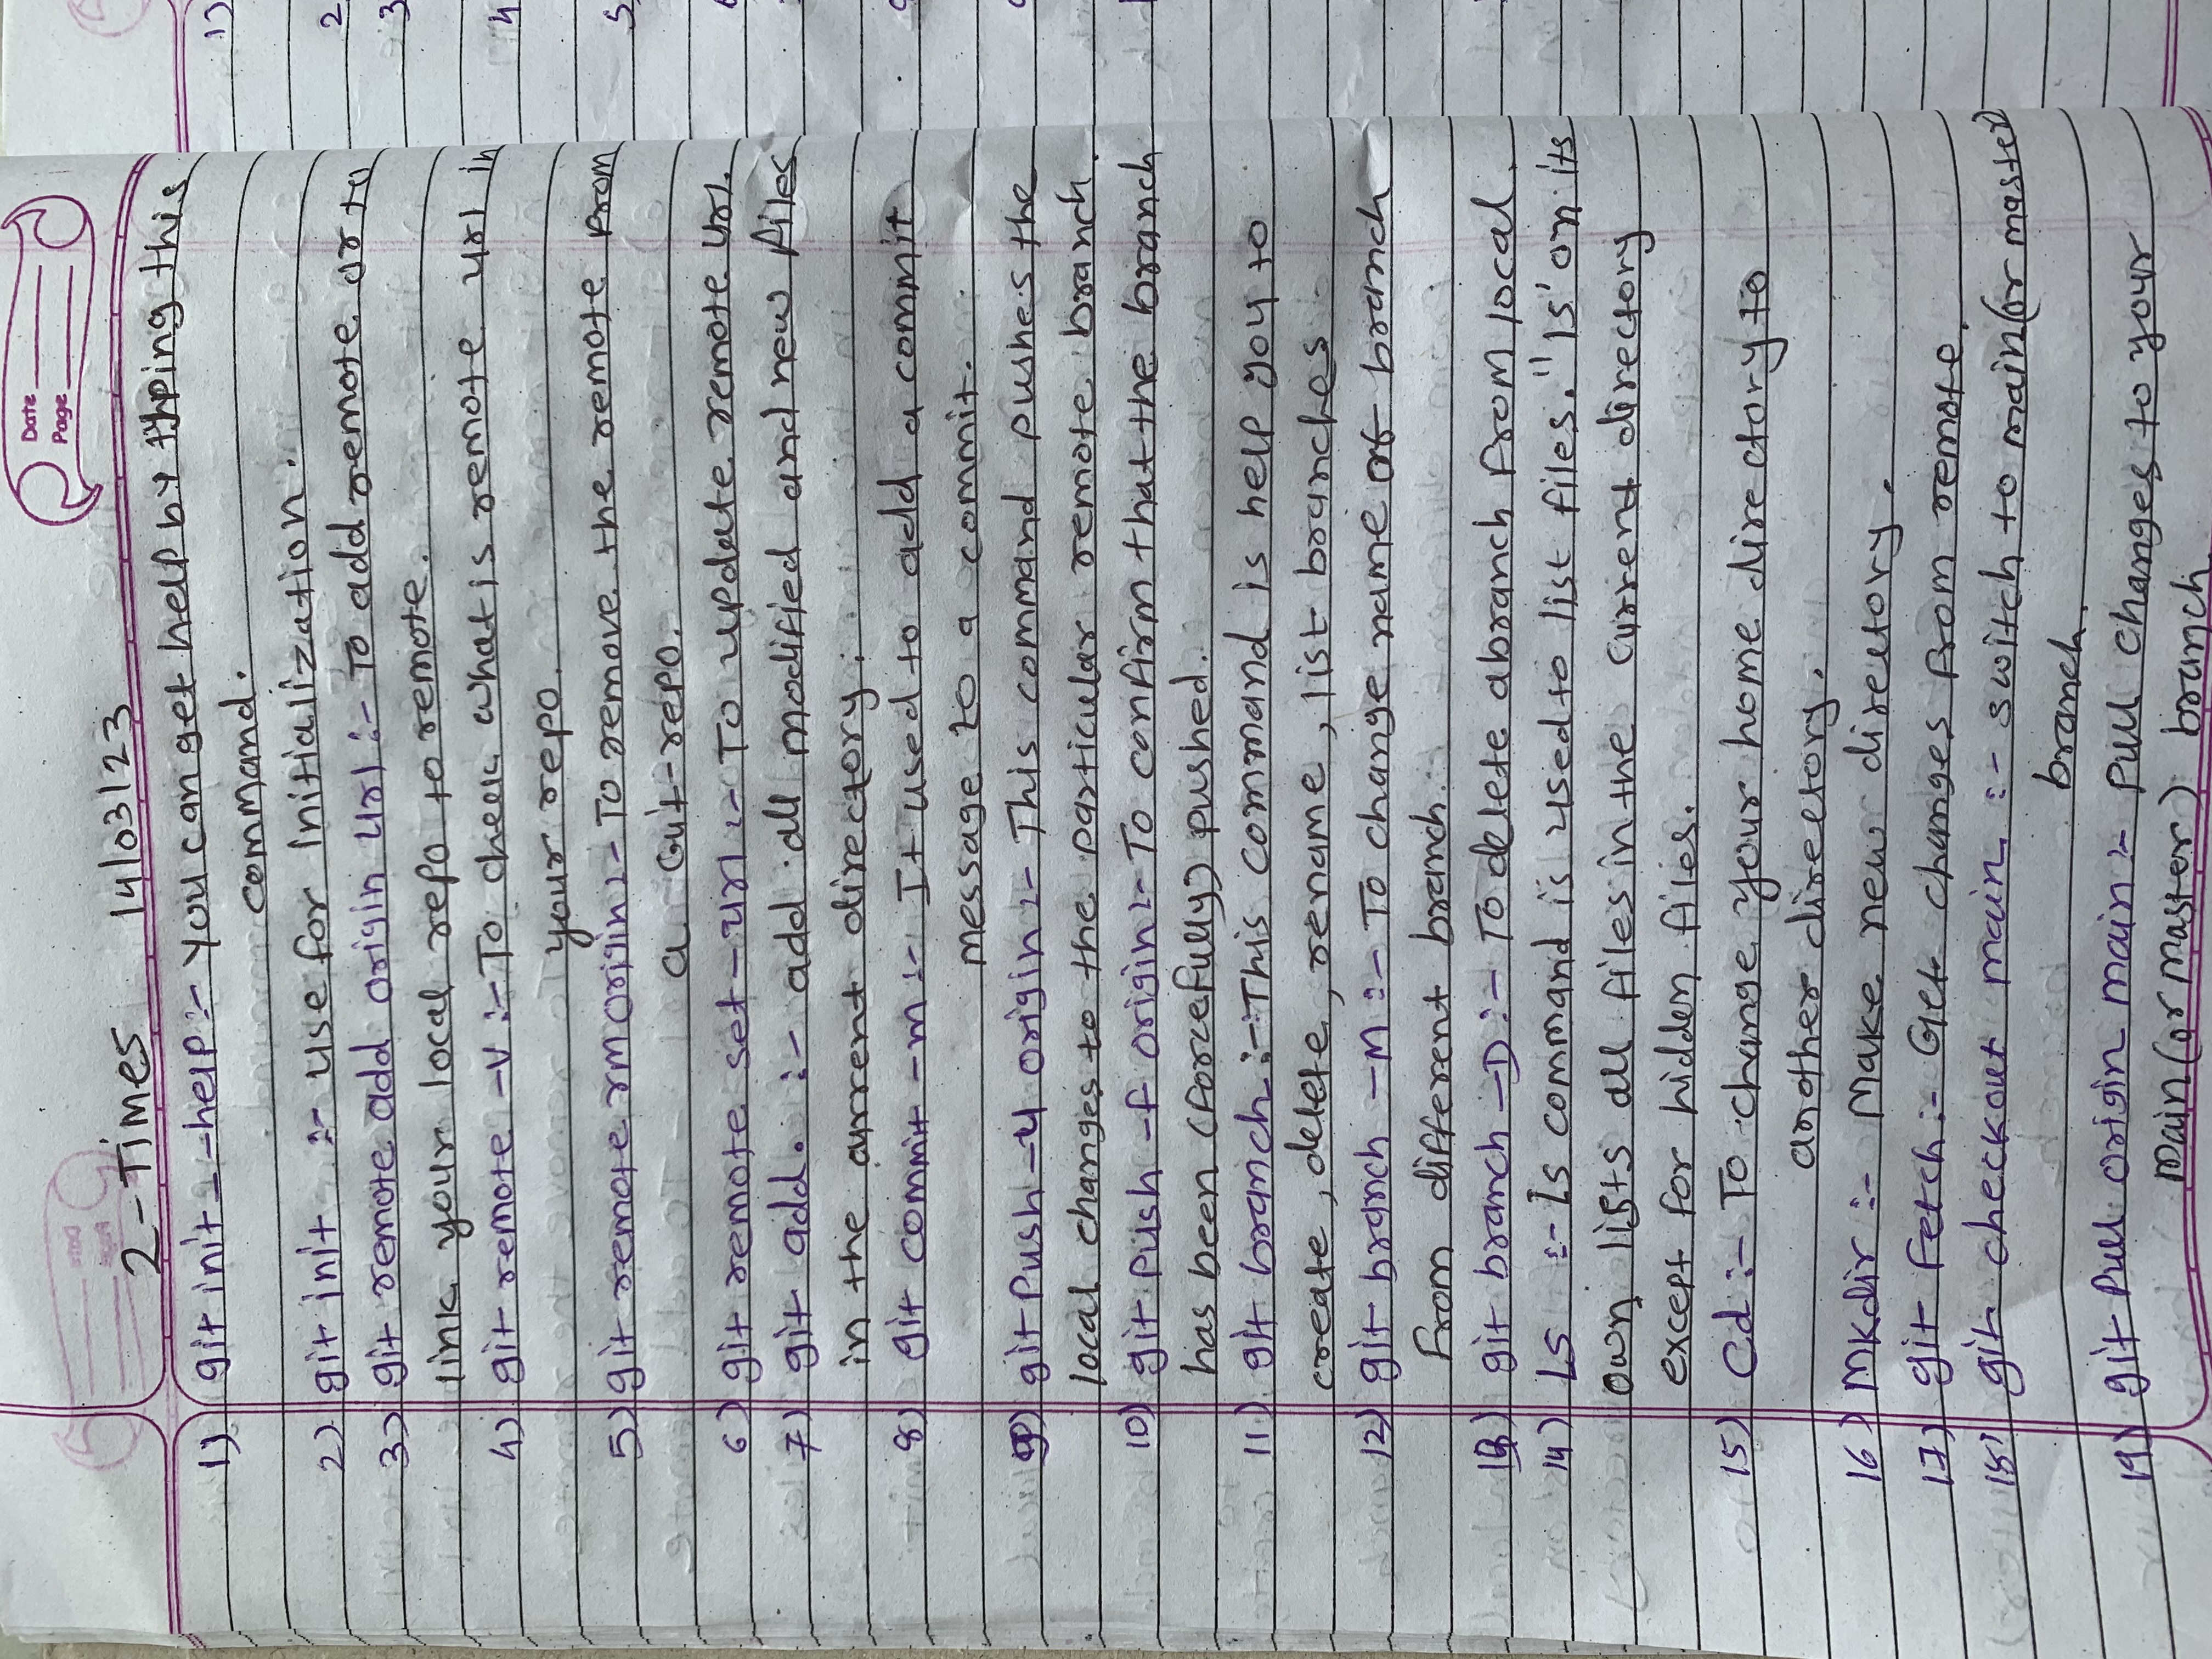 Date
Page
2-Times 14/03/23
1) git init --help :- You can get help by typing this
command.
2) git init :- use for Initialization.
3) git remote add origin url :- To add remote or to
link your local repo to remote.
4) git remote -v :- To check what is remote url in
your repo.
5) git remote rm origin :- To remove the remote from
a Git-repo.
6) git remote set-url :- To update remote url.
7) git add. :- add all modified and new files
in the current directory.
8) git commit -m :- It used to add a commit
message to a commit.
9) git Push -u origin :- This command pushes the
local changes to the particular remote branch.
10) git Push -f origin :- To confirm that the branch
has been (forcefully) pushed.
11) git branch :- This command is help you to
create, delete, rename, list branches
12) git branch -M :- To change name of branch
from different branch.
13) git branch -D :- To delete a branch from local.
14) Ls :- Ls command is used to list files. "ls' on its
own lists all files in the current directory
except for hidden files.
15) Cd :- To change your home directory to
another directory.
16) Mkdir :- Make new directory.
17) git Fetch :- Get changes from remote.
18) git checkout main :- switch to main(or master)
branch.
19) git Pull origin main :- Pull changes to your
main (or master) branch.
1)
2
3
4
5